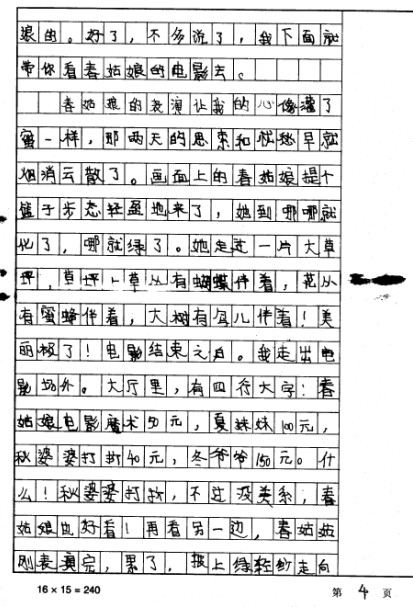 娘的。好了,不多说了,我下面就
带你看春姑娘的电影去。
春姑娘的表演让我的心像灌了
蜜一样,那两天的思索和忧愁早就
烟消云散了。画面上的春姑娘提个
篮子步态轻盈地来了,她到哪哪就
化了,哪就绿了。她走进一片大草
坪,草坪上草丛有蝴蝶伴着,花丛
有蜜蜂伴着,大树有鸟儿伴着!美
丽极了!电影结束之后。我走出电
影场外。大厅里,有四行大字:春
姑娘电影魔术50元,夏妹妹100元,
秋婆婆打折40元,冬爷爷150元。什
么!秋婆婆打折,不过没关系,春
姑娘也好看!再看另一边,春姑姑
刚表演完,累了,披上绿轻纱走向
16 × 15 = 240
第 4 页